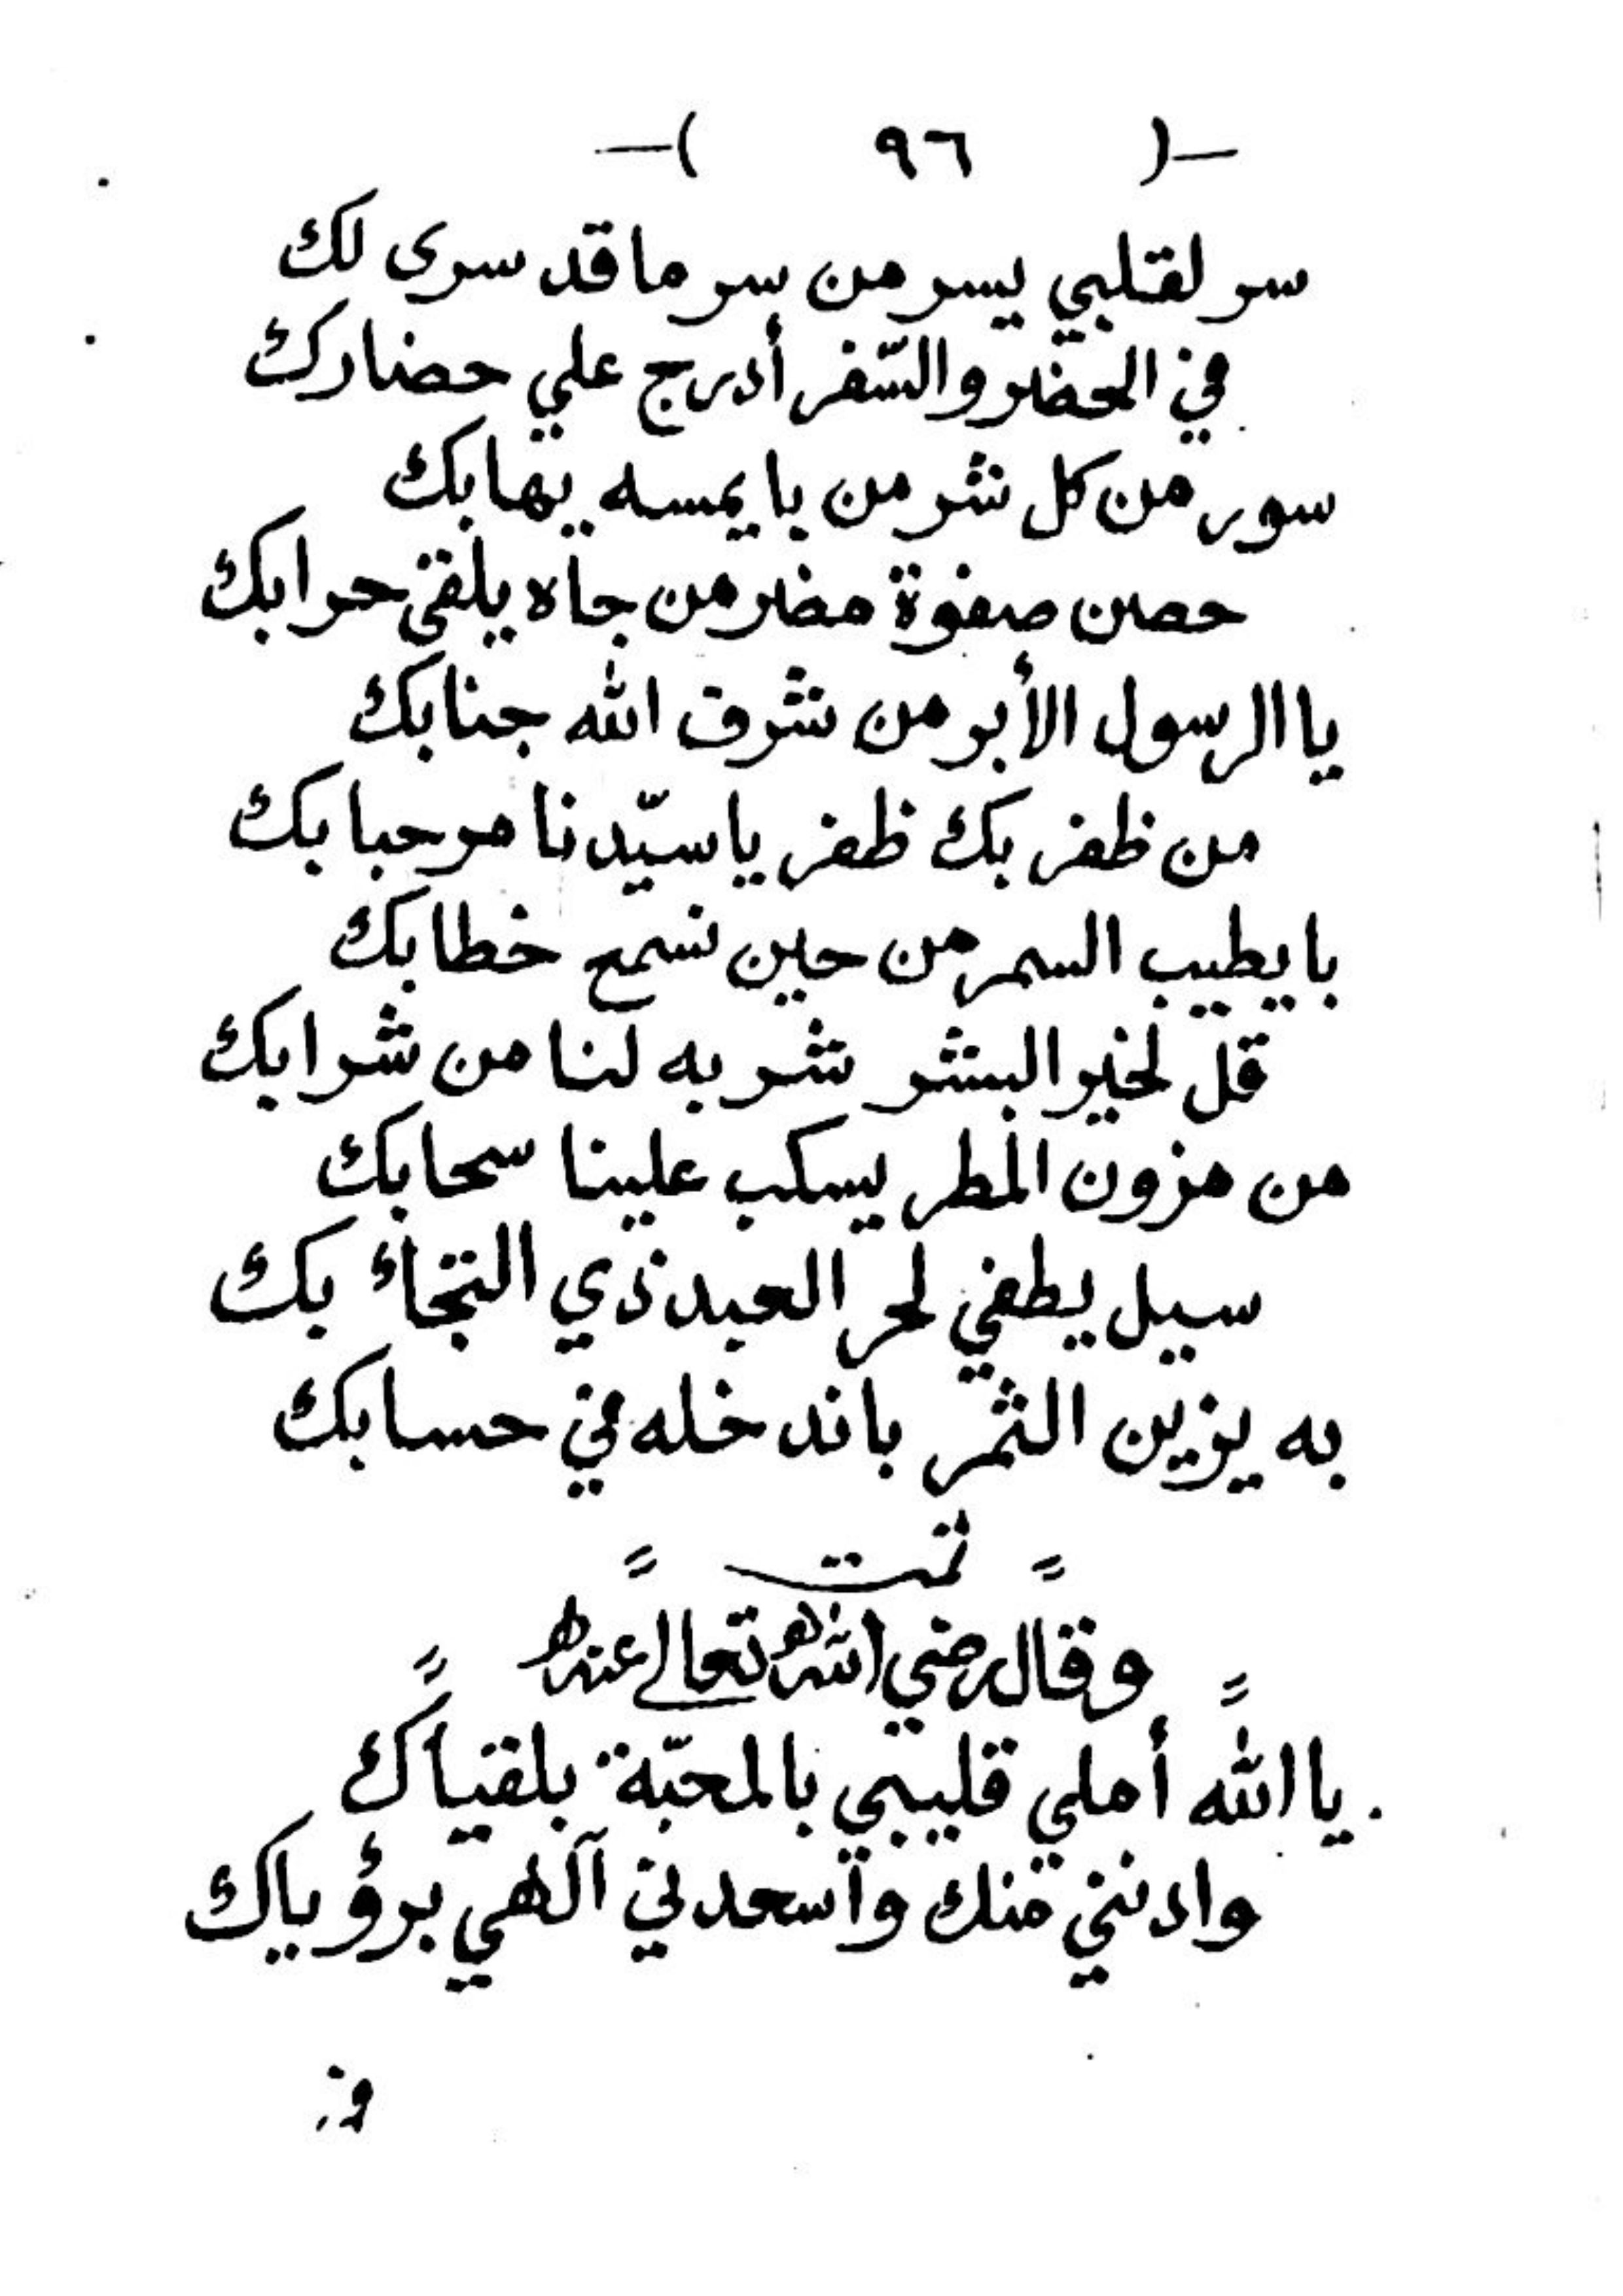 —( ٩٦ )—
سر لقلبي يسر من سر ما قد سرى لك
في الحضر والسّفر أدرج علي حضارك
سور من كل شر من با يمسه يهابك
حصن صفوة مضر من جاه يلقى حرابك
يا الرسول الأبر من شرف الله جنابك
من ظفر بك ظفر يا سيّدنا مرحبا بك
با يطيب السمر من حين نسمع خطابك
قل لخير البشر شربه لنا من شرابك
من مزون المطر يسكب علينا سحابك
سيل يطفي لحر العبد ذي التجاء بك
به يزين الثمر با ندخله في حسابك
= تمت =
= وقال رضي الله تعالى عنه =
يا الله أملي قليبي بالمحبّة بلقياك
وادنني منك وآسعدني آلهي برؤياك